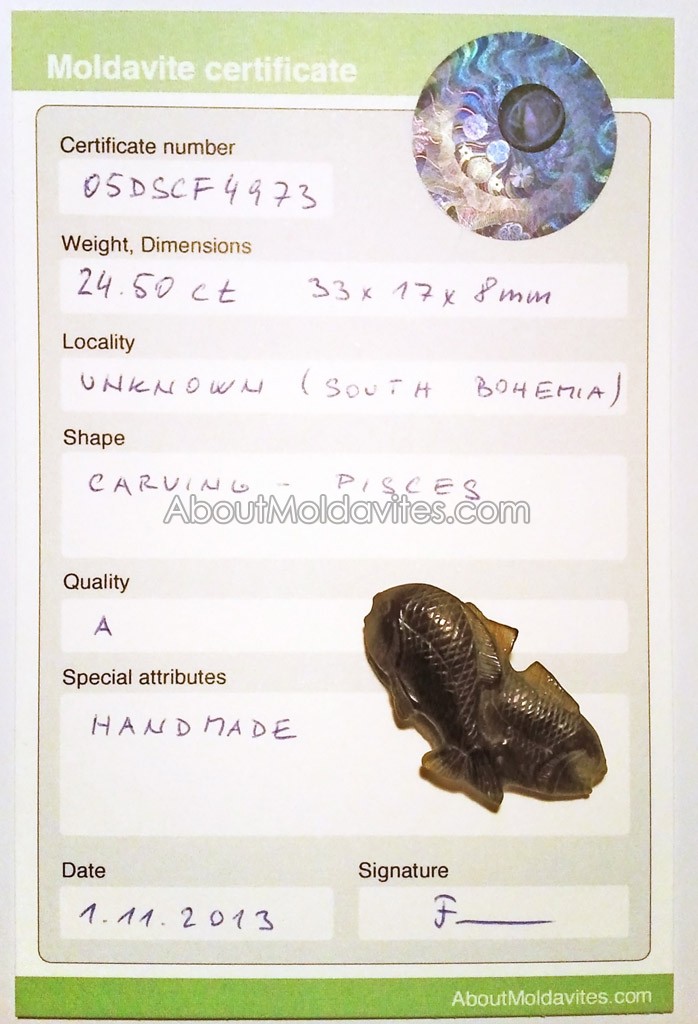 Moldavite certificate
Certificate number
05DSCF4973
Weight, Dimensions
24.50 ct 33 x 17 x 8mm
Locality
UNKNOWN (SOUTH BOHEMIA)
Shape
CARVING - PISCES
AboutMoldavites.com
Quality
A
Special attributes
HANDMADE
Date
Signature
1.11.2013
F
AboutMoldavites.com